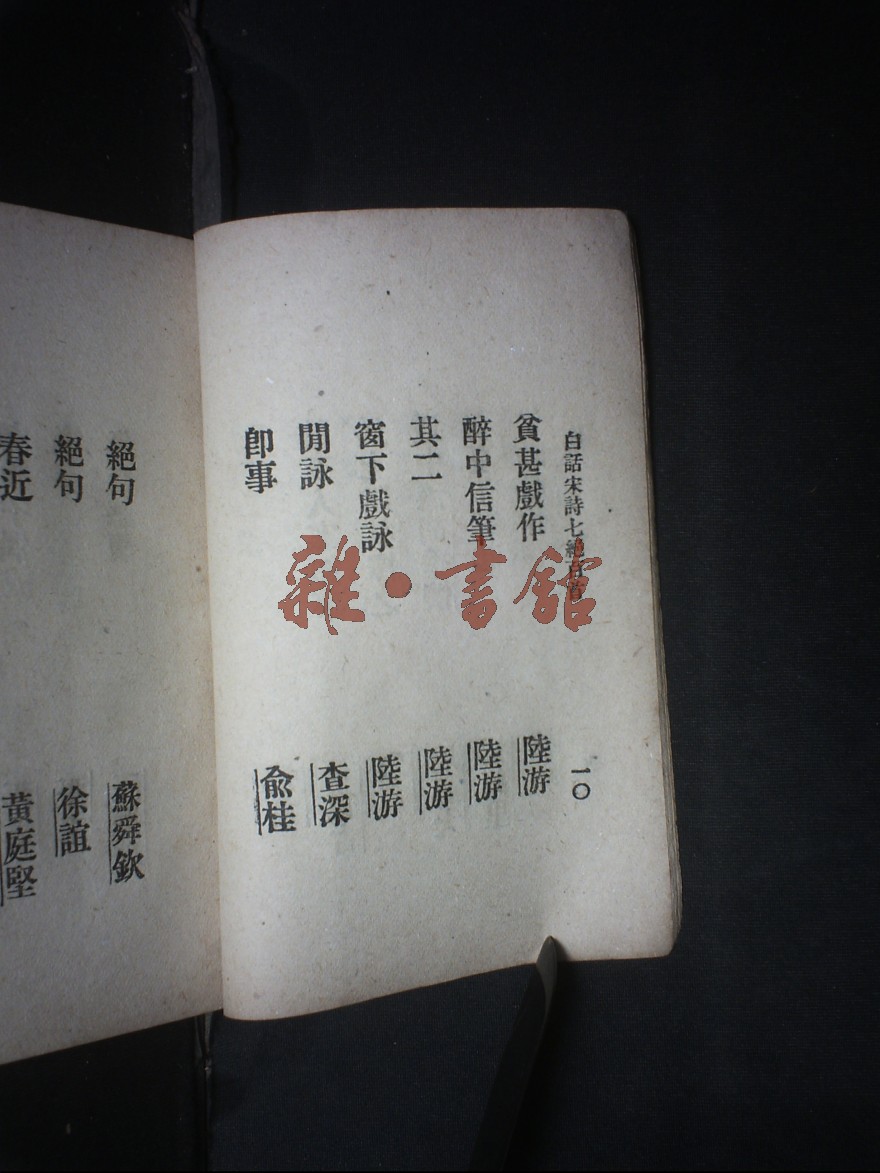 白話宋詩七絕百首
一〇
貧甚戲作 陸游
醉中信筆 陸游
其二 陸游
窗下戲詠 陸游
閒詠 查深
卽事 俞桂
絕句 蘇舜欽
絕句 徐誼
春近 黃庭堅
雜·書館